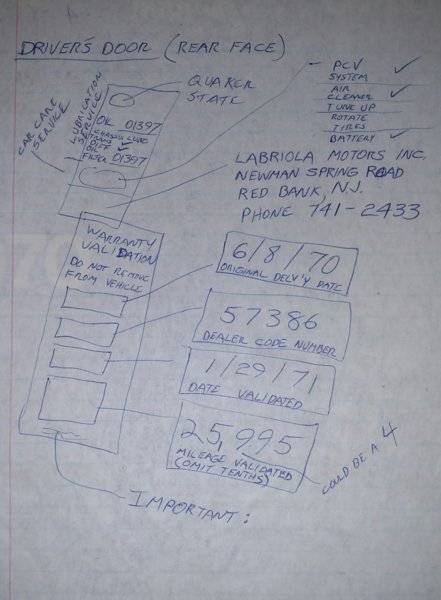 DRIVER'S DOOR (REAR FACE)
QUAKER
STATE
PCV ✓
SYSTEM
AIR
CLEANER ✓
TUNE UP
ROTATE
TIRES
BATTERY ✓
CAR CARE
SERVICE
LUBRICATION
SERVICE
OIL 01397
CHASSIS LUBE
TRANS
DIFF
OIL ✓
FILTER 01397
LABRIOLA MOTORS INC.
NEWMAN SPRING ROAD
RED BANK, N.J.
PHONE 741-2433
WARRANTY
VALIDATION
DO NOT REMOVE
FROM VEHICLE
6/8/70
ORIGINAL DELV'Y DATE
57386
DEALER CODE NUMBER
1/29/71
DATE VALIDATED
25,995
MILEAGE VALIDATED
(OMIT TENTHS)
COULD BE A 4
IMPORTANT: